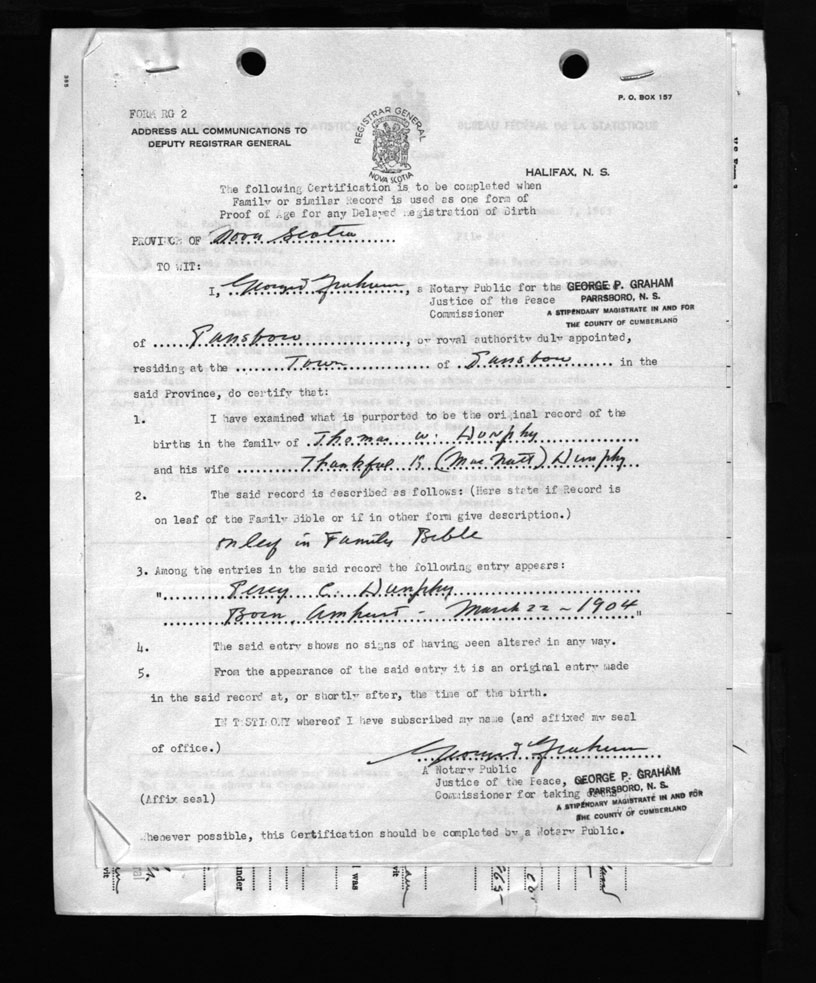 P. O. BOX 157
FORM RG 2
ADDRESS ALL COMMUNICATIONS TO
DEPUTY REGISTRAR GENERAL
REGISTRAR GENERAL
NOVA SCOTIA
HALIFAX, N. S.
The following Certification is to be completed when
Family or similar Record is used as one form of
Proof of Age for any Delayed Registration of Birth
PROVINCE OF Nova Scotia
TO WIT:
I, George P. Graham, a Notary Public for the GEORGE P. GRAHAM
Justice of the Peace PARRSBORO, N. S.
Commissioner A STIPENDARY MAGISTRATE IN AND FOR
THE COUNTY OF CUMBERLAND
of Parrsboro, by royal authority duly appointed,
residing at the Town of Parrsboro in the
said Province, do certify that:
1. I have examined what is purported to be the original record of the
births in the family of Thomas W. Dunphy
and his wife Thankful B (MacNutt) Dunphy
2. The said record is described as follows: (Here state if Record is
on leaf of the Family Bible or if in other form give description.)
on leaf in Family Bible
3. Among the entries in the said record the following entry appears:
" Percy C. Dunphy
Born, Amherst - March 22 - 1904 "
4. The said entry shows no signs of having been altered in any way.
5. From the appearance of the said entry it is an original entry made
in the said record at, or shortly after, the time of the birth.
IN TESTIMONY whereof I have subscribed my name (and affixed my seal
of office.) George P. Graham
A Notary Public
Justice of the Peace, GEORGE P. GRAHAM
Commissioner for taking PARRSBORO, N. S.
A STIPENDARY MAGISTRATE IN AND FOR
THE COUNTY OF CUMBERLAND
(Affix seal)
Whenever possible, this Certification should be completed by a Notary Public.
under
I was